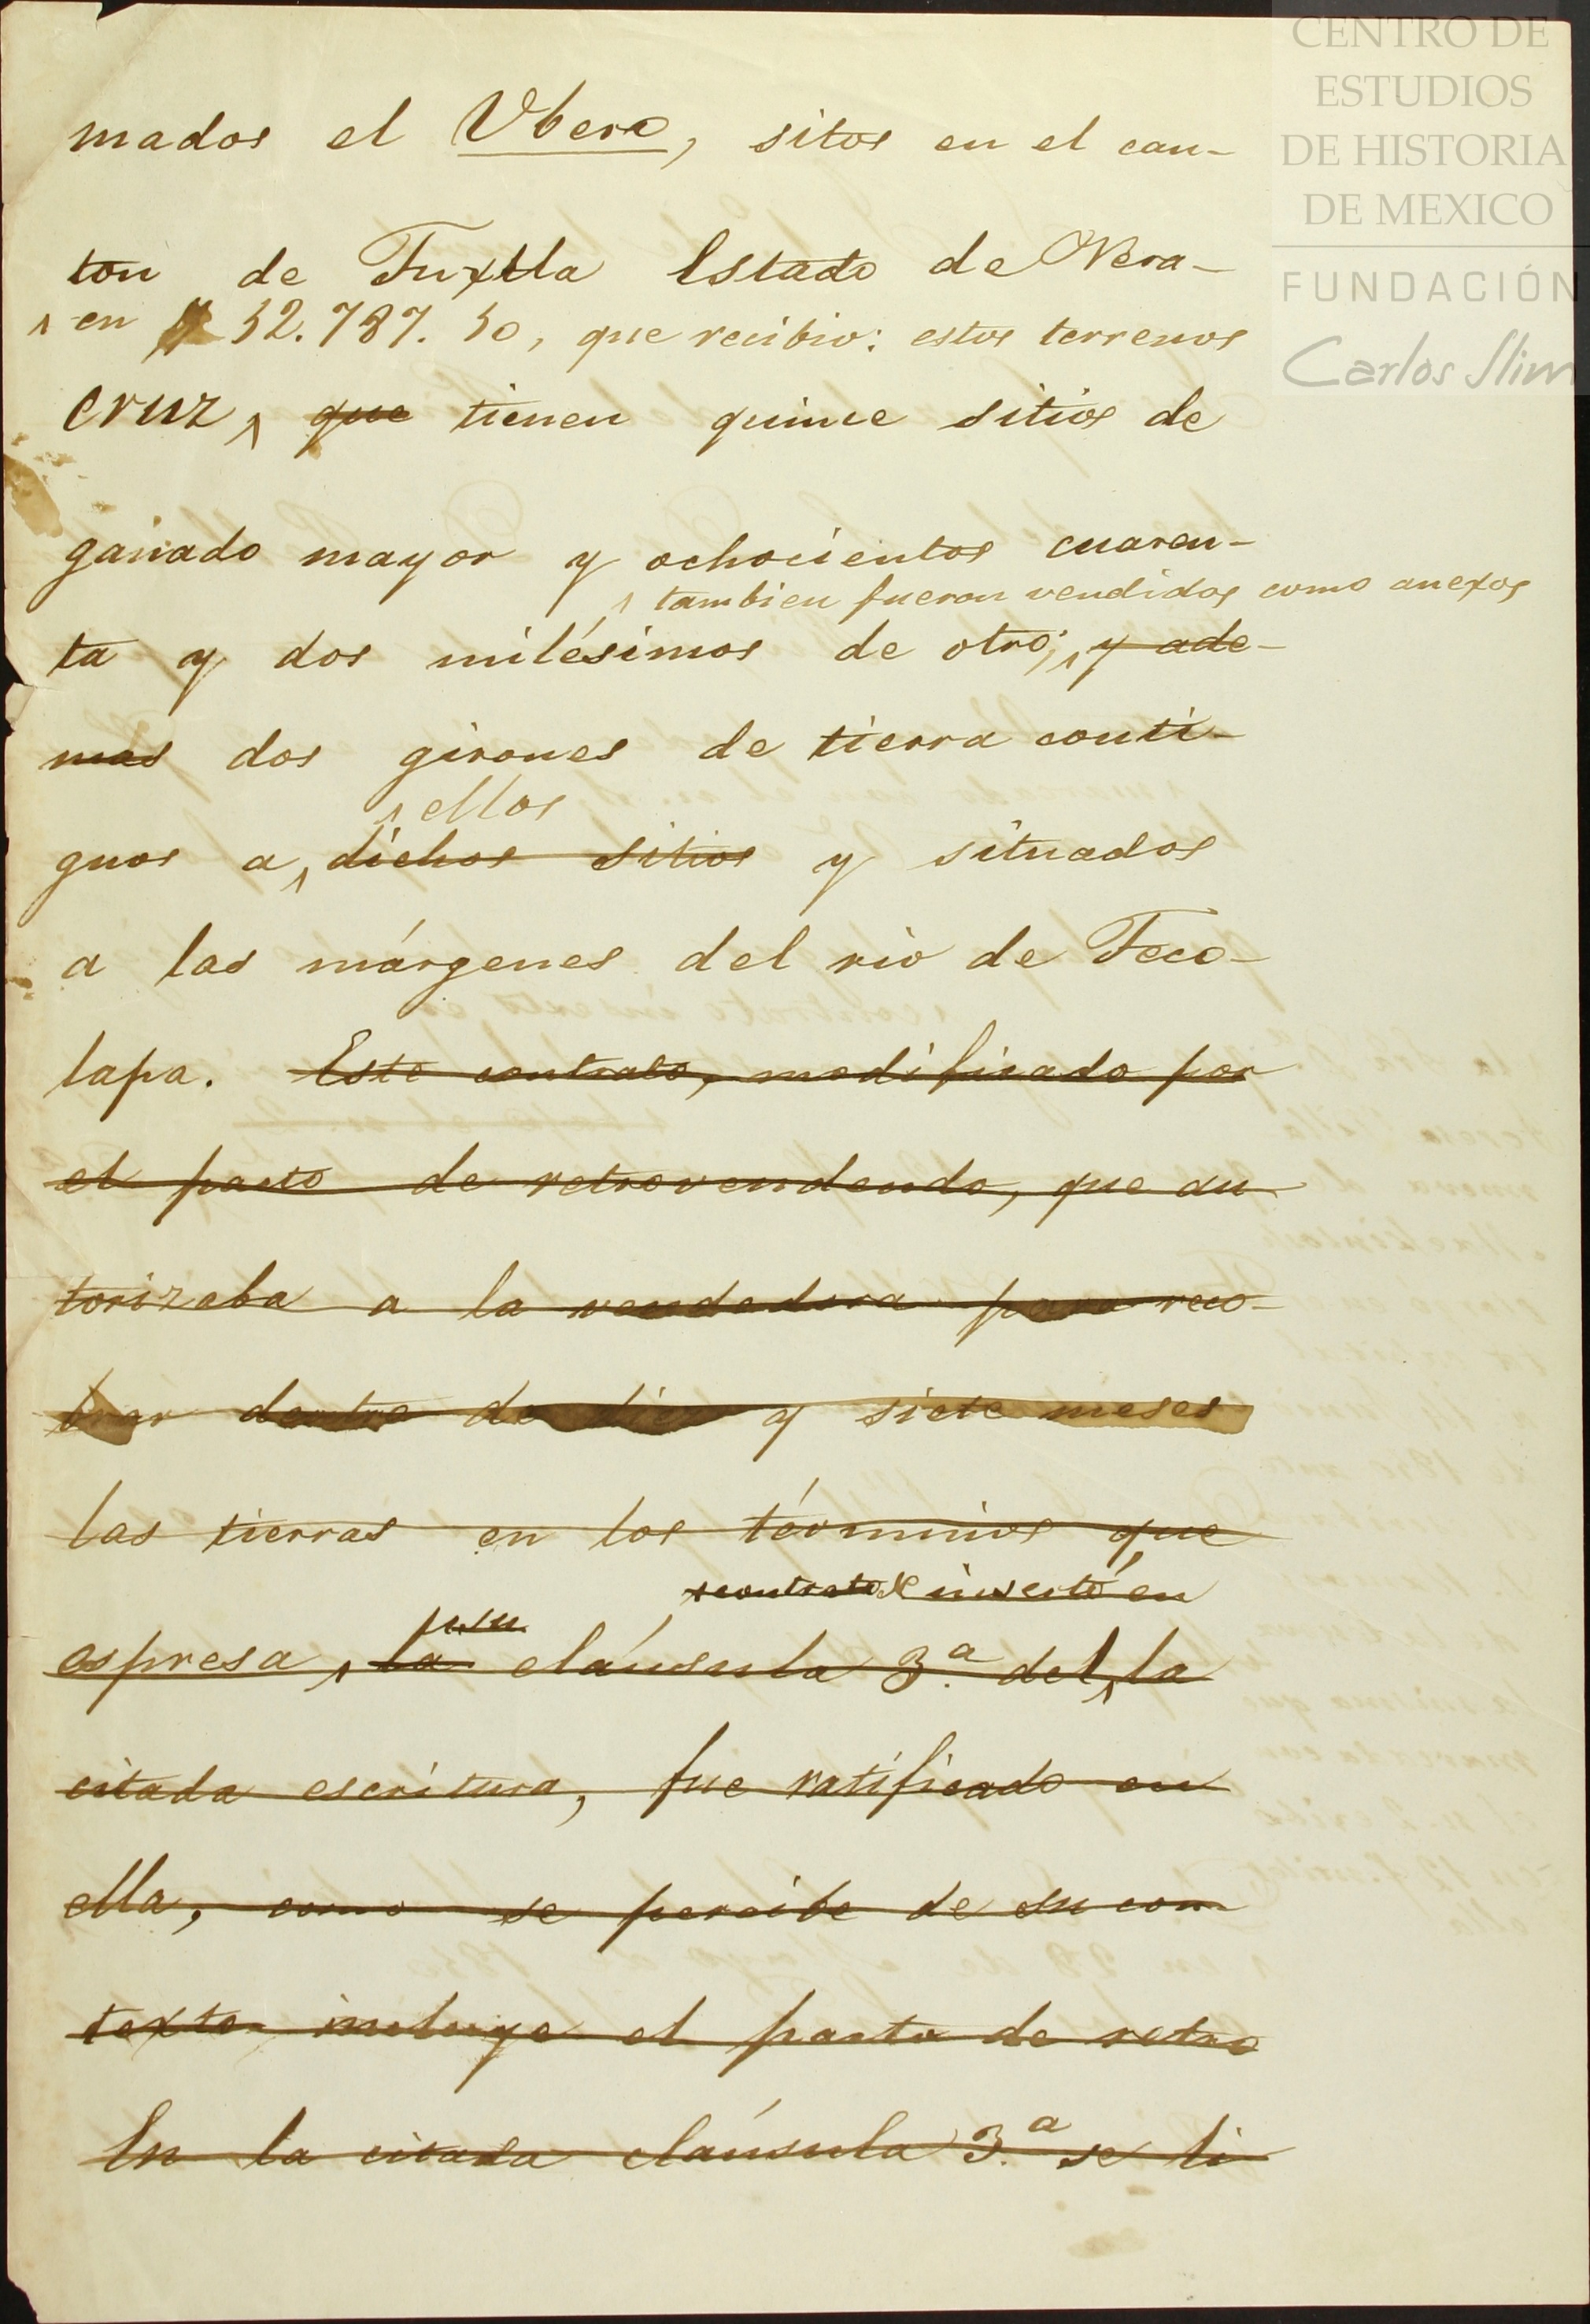 mados el Ubero, sitos en el can-
ton de Tuxtla Estado de Vera-
en $ 32.787.50, que recibio: estos terrenos
cruz, que tienen quince sitios de
ganado mayor y ochocientos cuaren-
tambien fueron vendidos como anexos
ta y dos milésimos de otro; y ade-
mas dos girones de tierra conti-
ellos
guos a, dichos sitios y situados
a las márgenes del rio de Teco-
lapa. Este contrato, modificado por
el pacto de retrovendendo, que au-
torizaba a la vendedora para reco-
brar dentro de diez y siete meses
las tierras en los términos que
contrato inserto en
espresa, la cláusula 3.a del la
citada escritura, fue ratificado en
ella, como se percibe de su con-
texto incluye el pacto de retro
En la citada cláusula 3.a se li-
CENTRO DE
ESTUDIOS
DE HISTORIA
DE MEXICO
FUNDACIÓN
Carlos Slim